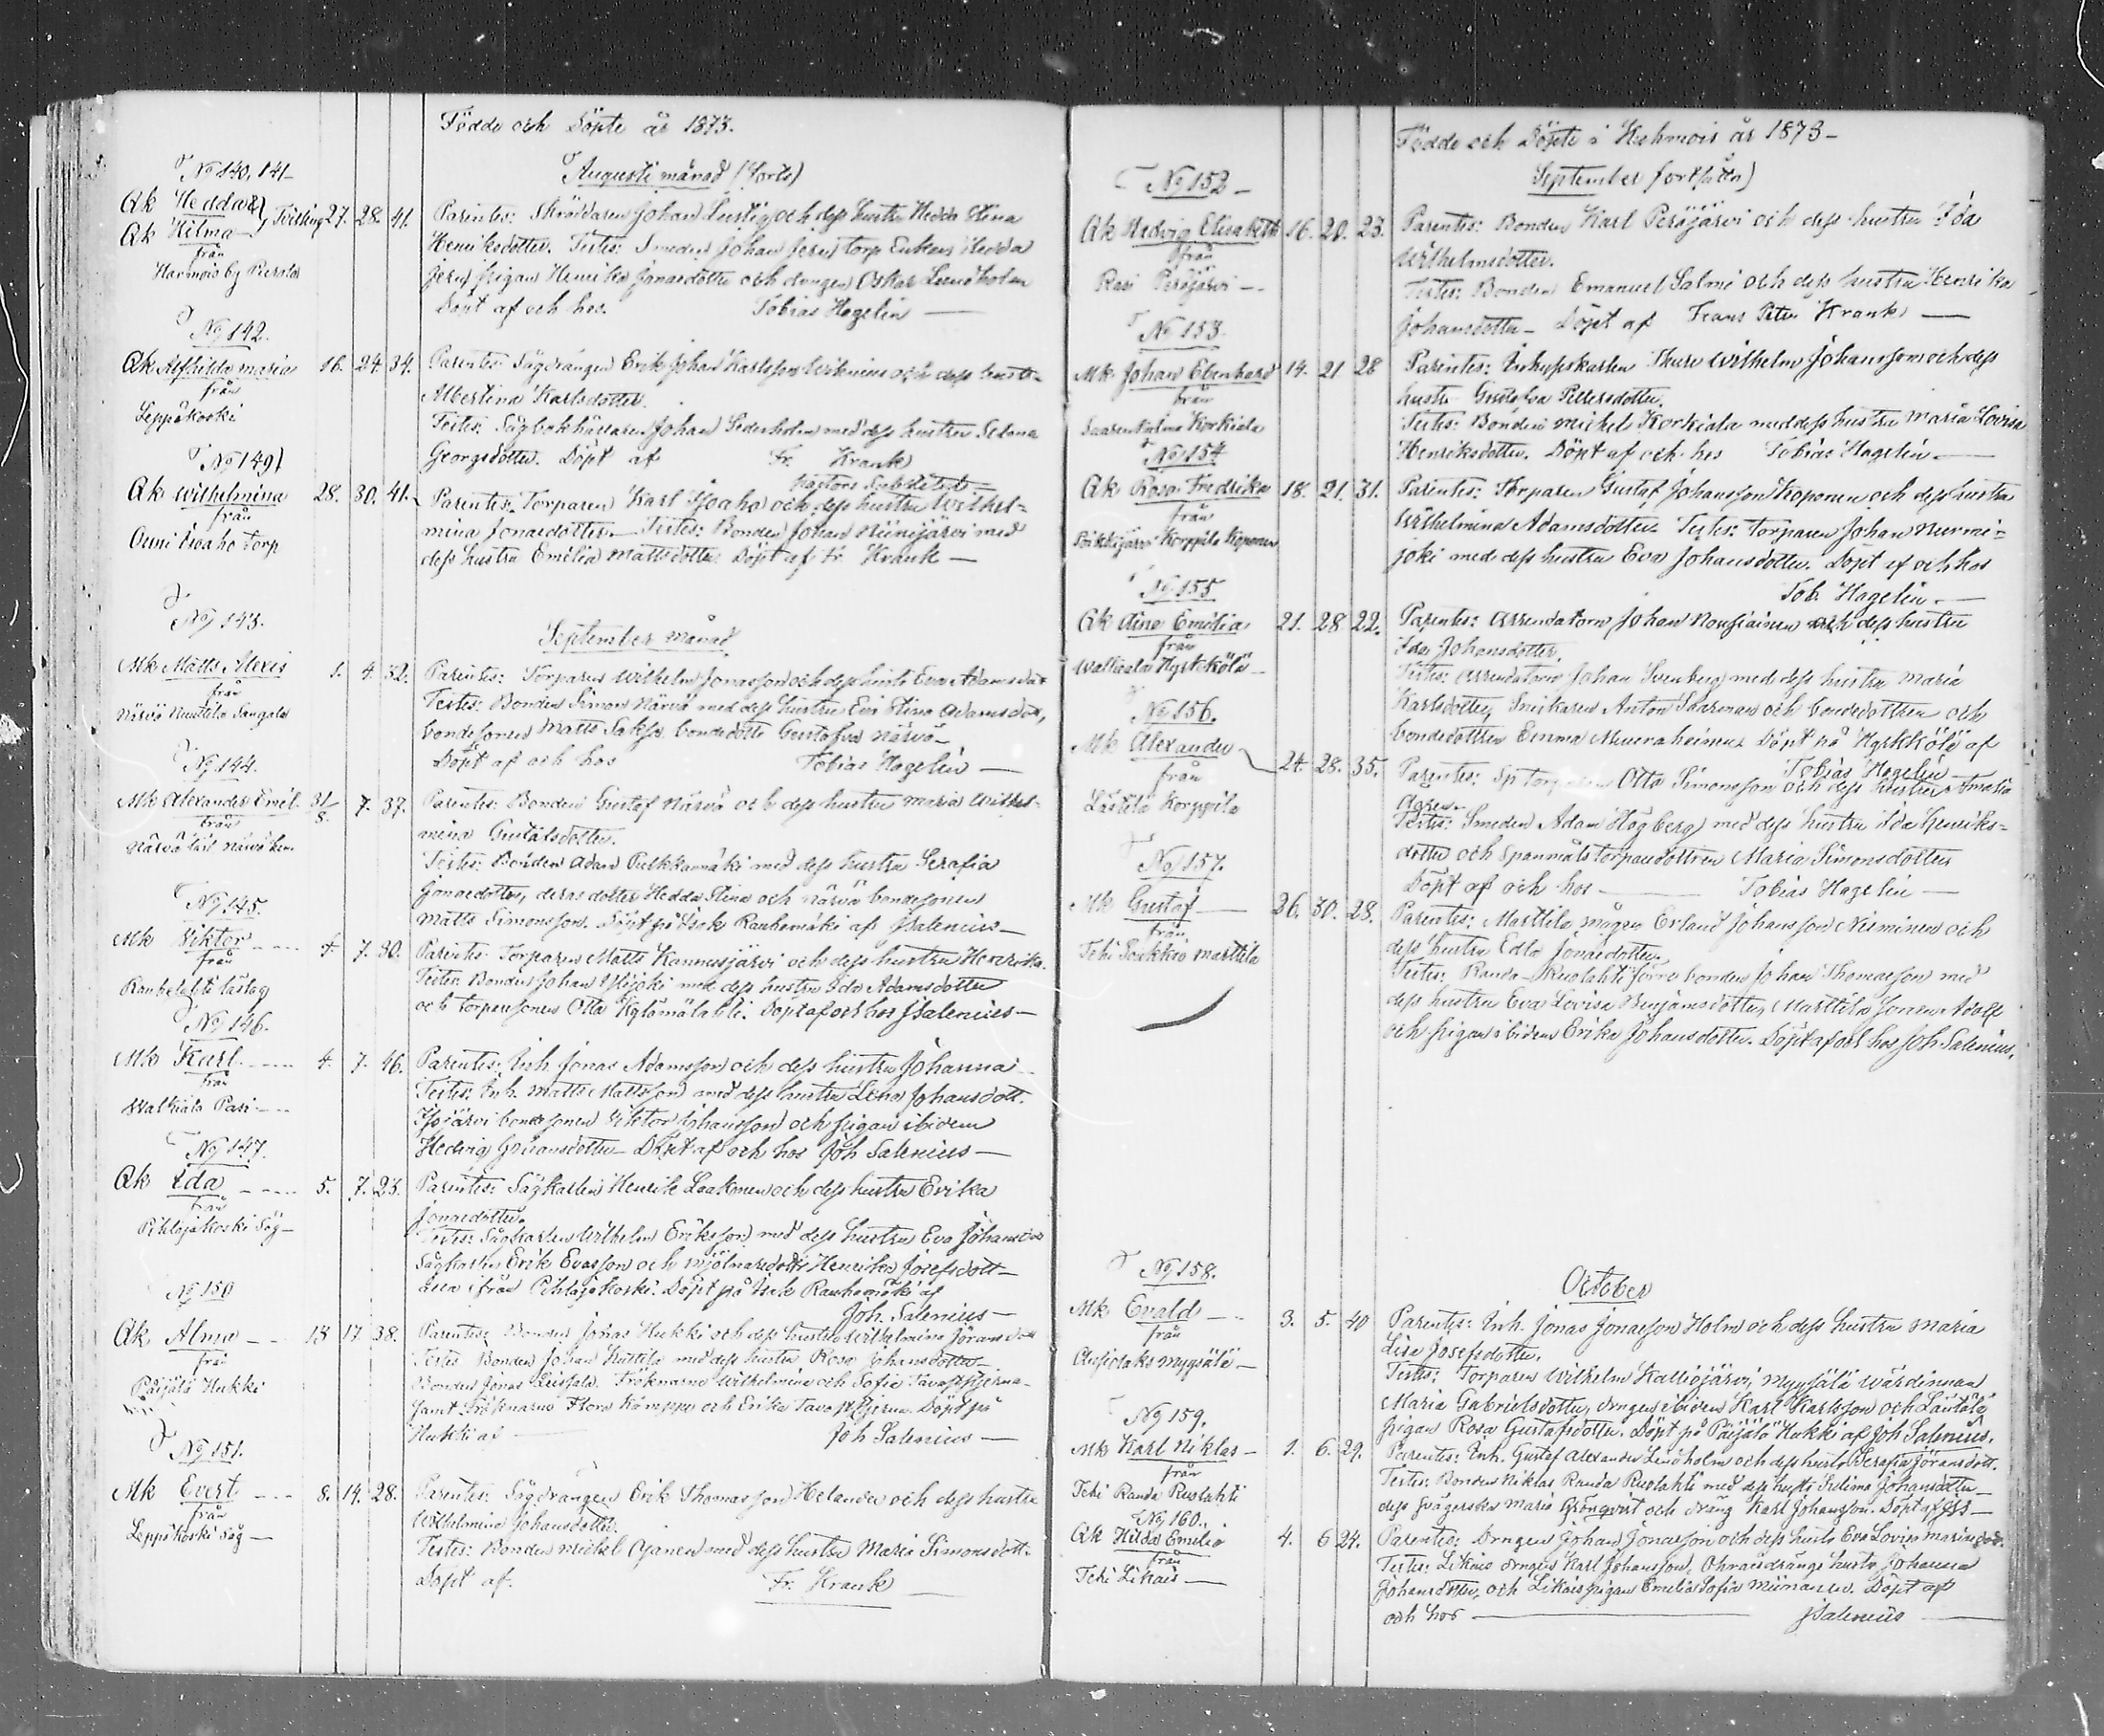 Födde och Döpte år 1873.
Augusti månad (Forts)
No 140, 141-
Qk Hedda
Qk Hilma Tvilling 27. 28. 41.
från
Parentes: Skräddaren Johan Lustig och dess hustru Hedda Stina
Henriksdotter. Testes: Smeden Johan torp Enkan Hedda
pigan Henrika Jonasdotter och drängen Oskar Lindholm
Döpt af och hos. Tobias Hagelin
No 142.
Qk Alfhilda Maria 16. 24. 34.
från
Leppäkoski
Parentes: Sågdrängen Erik Johan Karlsson och dess hustru
Albertina Karlsdotter.
Testes: Sågbokhållaren Johan Söderholm med dess hustru Selma
Georgsdotter. Döpt af Fr. Krank
Pastors
No 149
Qk Wilhelmina 28. 30. 41.
från
Ouni Isoaho torp
Parentes: Torparen Karl Isoaho och dess hustru Wilhel-
mina Jonasdotter. Testes: Bonden Johan Niinijärvi med
dess hustru Emilia Mattsdotter. Döpt af Fr. Krank
September månad
No 143.
Mk Matts Alexis 1. 4. 32.
från
Närvä Sangala
Parentes: Torparen Wilhelm Jonasson och dess hustru Eva Adamsdr
Testes: Bonden Simon Närvä med dess hustru Eva Stina Adamsdotr,
bondesonen Matts bondedotter Gustafva Närvä
Döpt af och hos Tobias Hagelin
No 144.
Mk Alexander Emil 31/8. 7. 37.
från
Parentes: Bonden Gustaf Närvä och dess hustru Maria Wilhel-
mina Gustafsdotter.
Testes: Bonden Adam Pukkamäki med dess hustru Serafia
Jonasdotter, deras dotter Hedda Stina och Närvä bondesonen
Matts Simonsson. Döpt på Isok Rauhamäki af JSalenius
No 145.
Mk Viktor 4. 7. 30.
från
Parentes: Torparen Matts Kannusjärvi och dess hustru Henrika.
Testes: Bonden Johan Ylijoki med dess hustru Ida Adamsdotter
och torparsonen Otto Kylämälahti. Döpt af och hos JSalenius
No 146.
Mk Karl 4. 7. 46.
från
Walkiala Pasi
Parentes: Inh. Jonas Adamsson och dess hustru Johanna
Testes: Inh. Matts Mattsson med dess hustru Lena Johansdott.
Isojärvi bondesonen Viktor Johansson och pigan ibidem
Hedvig Johansdotter Döpt af och hos Joh Salenius
No 147.
Qk Ida 5. 7. 23.
från
Pihlajakoski Såg
Parentes: Sågkarlen Henrik Laakonen och dess hustru Erika
Jonasdotter.
Testes: Sågkarlen Wilhelm Eriksson med dess hustru Eva Johansdr
Sågkarlen Erik Evasson och mjölnarsdottr Henrika Josefsdott
från Pihlajakoski. Döpt på Isok Rauhamäki af
Joh. Salenius
No 150
Qk Alma 13 17 38.
från
Päijälä Hukki
Parentes: Bonden Johan Hukki och dess hustru Wilhelmina Göransdr
Testes: Bonden Johan Huttila med dess hustru Rosa Johansdotter
Bonden Jonas Fröknarne Wilhelmina och Sofia Tavaststjerna
samt Fröknarne Flora Kämppe och Erika Tavaststjerna. Döpt på
Hukki af Joh Salenius
No 151.
Mk Evert 8. 14. 28.
från
Leppäkoski Såg
Parentes: Sågdrängen Erik Thomasson Helander och dess hustru
Wilhelmina Johansdotter.
Testes: Bonden Michel Ojanen med dess hustru Maria Simonsdott.
Döpt af. Fr. Krank
Födde och Döpte i Kuhmois år 1873
September fortsättn)
No 152
Qk Hedvig Elisabeth 16. 20. 23.
från
Pasi Peräjärvi
Parentes: Bonden Karl Peräjärvi och dess hustru Ida
Wilhelmsdotter.
Testes: Bonden Emanuel Salmi och dess hustru Henrika
Johansdotter Döpt af Frans Peter Krank
No 153.
Mk Johan Ebenhard 14. 21 28
från
Korkiala
Parentes: Inhyseskarlen Thure Wilhelm Johansson och dess
hustru Gustafva Pettersdotter.
Testes: Bonden Michel Korkiala med dess hustru Maria Lovisa
Henriksdotter. Döpt af och hos Tobias Hagelin
No 154
Qk Rosa Fredrika 18. 21. 31.
från
Korppila Koponen
Parentes: Torparen Gustaf Johansson Koponen och dess hustru
Wilhelmina Adamsdotter. Testes: torparen Johan Nurmi-
joki med dess hustru Eva Johansdotter. Döpt af och hos
Tob. Hagelin
No 155
Qk Aina Emilia 21. 28 22.
från
Walkiala Hyrkkölä
Parentes: Arrendatorn Johan Nousiainen och dess hustru
Ida Johansdotter.
Testes: Arrendatorn Johan Svenberg med dess hustru Maria
Karlsdotter, Snickaren Anton Saarinen och bondedottren och
bondedottren Emma Döpt på Hyrkkölä af
Tobias Hagelin
No 156.
Mk Alexander 24. 28. 35.
från
Lästilä Korppila
Parentes: Otto Simonsson och dess hustru Amalia
Testes: Smeden Adam Högberg med dess hustru Ida Henriks-
dotter och Spanmålstorpardottren Maria Simonsdotter
Döpt af och hos Tobias Hagelin
No 157.
Mk Gustaf 26. 30. 28.
från
Tehi Soukkio Marttila
Parentes: Marttila mågen Erland Johansson Nieminen och
dess hustru Edla Jonasdotter.
Testes: Randa-Ruolahti förre bonden Johan Thomasson med
dess hustru Eva Lovisa Benjamsdotter, Marttila sonen Adolf
och pigan ibidem Erika Johansdotter. Döpt af och hos Joh. Salenius.
October
No 158.
Mk Evald 3. 5. 40
från
Myysälä
Parentes: Inh. Jonas Jonasson Holm och dess hustru Maria
Lisa Josefsdotter.
Testes: Torparen Wilhelm Kalliojärvi, Myysälä värdinnan
Maria Gabrielsdotter, drngen ibidem Karl Karlsson och Lästilä
pigan Rosa Gustafsdotter. Döpt på Päijälä Hukki af Joh Salenius.
No 159.
Mk Karl Niklas 1. 6. 29.
från
Tehi Randa Ruolahti
Parentes: Inh. Gustaf Alexander Lindholm och dess hustru Serafia Göransdott.
Testes: Bonden Niklas Randa Ruolahti med dess hustru Sulima Johansdotter
dess svägerska Maria Grönqvist och dräng Karl Johansson. Döpt af JS
No 160.
Qk Hilda Emilia 4. 6 24.
från
Tehi Likais
Parentes: Drngen Johan Jonasson och dess hustru Eva Lovisa
Testes: Likais drngen Karl Johansson, hustru Johanna
Johansdotter, och Likais pigan Emelia Sofia Miinanen. Döpt af
och hos JSalenius